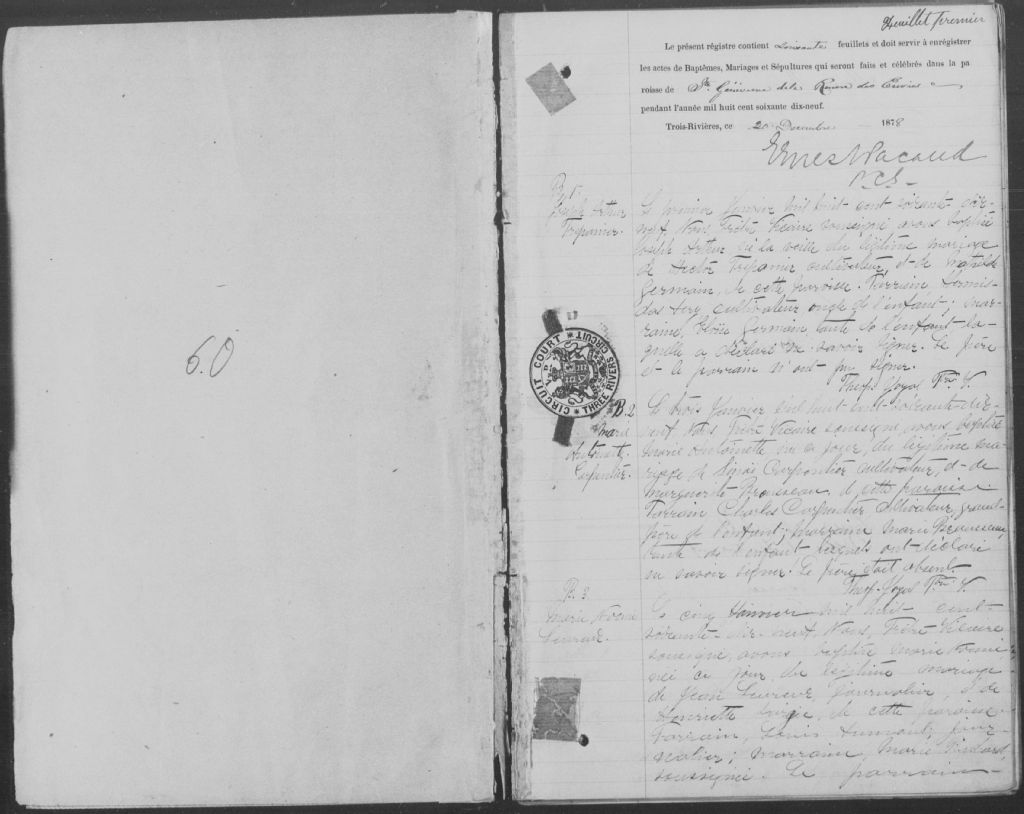 60
feuillet Premier
Le présent régistre contient soixante feuillets et doit servir à enrégistrer
les actes de Baptêmes, Mariages et Sépultures qui seront faits et célébrés dans la pa
roisse de Ste Geneviève de la
pendant l'année mil huit cent soixante dix-neuf.
Trois-Rivières, ce 20 Decembre 1878
Ernest Pacaud
P.C.S.
B. 1
Joseph Arthur
Trepanier.
Le premier Janvier mil huit cent soixante dix-
neuf, Nous Prêtre Vicaire soussigné avons baptisé
Joseph Arthur né la veille du légitime mariage
de Hector Trepanier cultivateur, et de Mathilde
Germain, de cette paroisse. Parrain,
cultivateur oncle de l'enfant; mar-
raine, Germain tante de l'enfant la-
quelle a déclaré ne savoir signer. Le père
et le parrain n'ont pu signer.
Ptre V.
CIRCUIT COURT THREE RIVERS CIRCUIT
B. 2
Marie
Antoinette
Carpentier.
Le trois Janvier mil huit cent soixante-dix-
neuf Nous Prêtre Vicaire soussigné avons baptisé
Marie Antoinette née ce jour, du légitime ma-
riage de Carpentier cultivateur, et de
Marguerite Brousseau, de cette paroisse.
Parrain Charles Carpentier cultivateur, grand-
père de l'enfant; marraine Marie Brousseau,
tante de l'enfant lesquels ont déclaré
ne savoir signer. Le père était absent.
Ptre V.
B. 3
Marie
Le cinq Janvier mil huit cent
soixante-dix-neuf, Nous, Prêtre Vicaire
soussigné, avons baptisé Marie
née ce jour, du légitime mariage
de Jean journalier, et de
Henriette de cette paroisse
Parrain, Louis jour-
nalier; marraine, Marie
soussignée. Le parrain